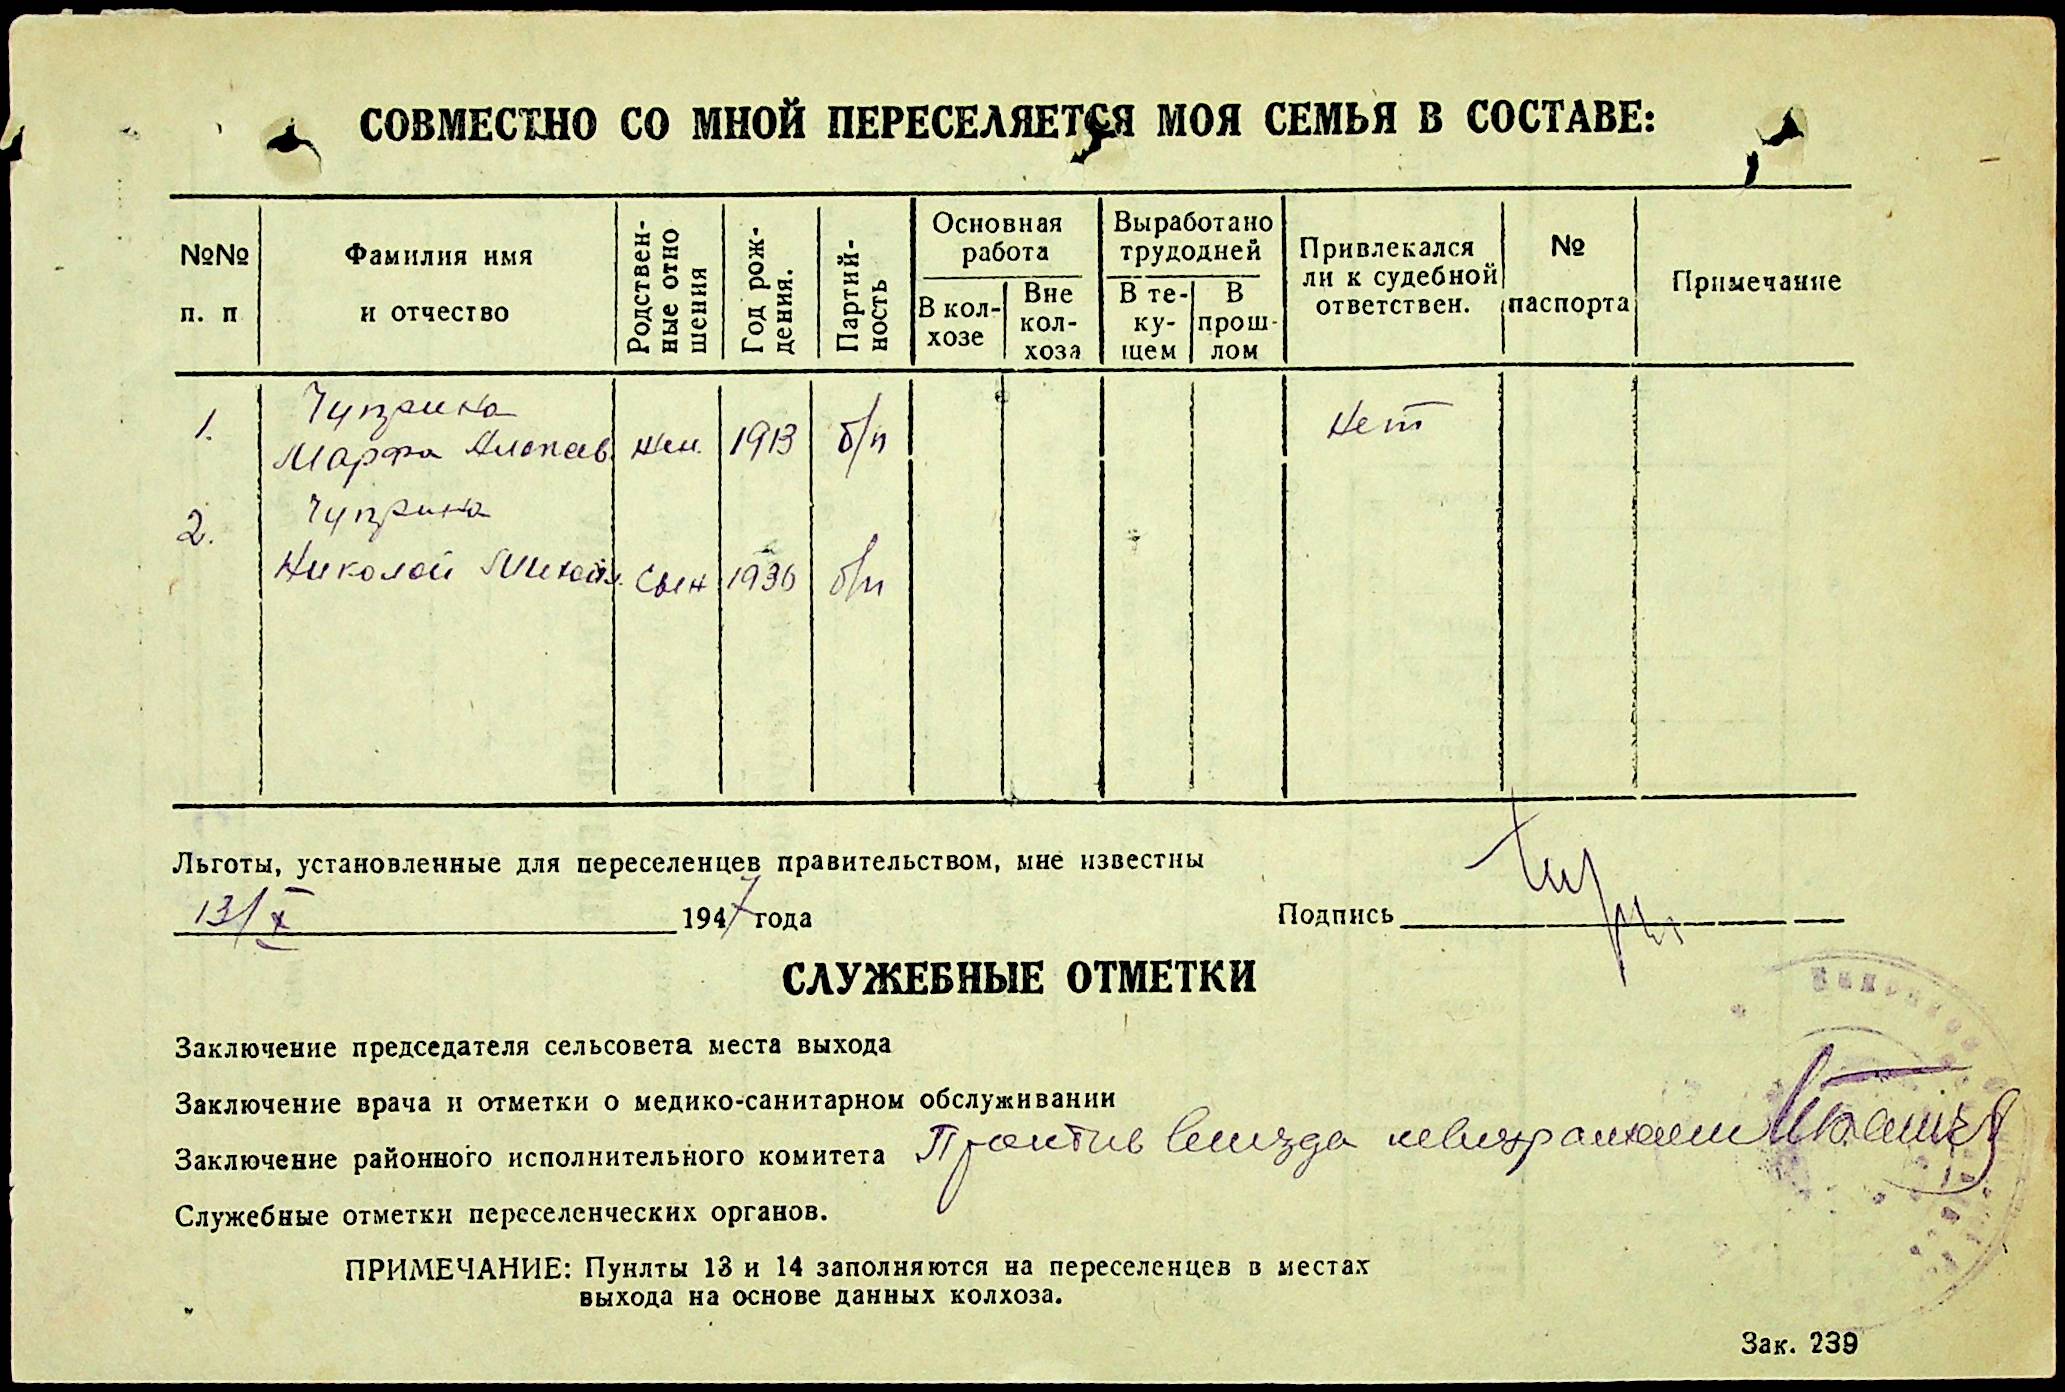 СОВМЕСТНО СО МНОЙ ПЕРЕСЕЛЯЕТСЯ МОЯ СЕМЬЯ В СОСТАВЕ:
№№ п. п
Фамилия имя и отчество
Родствен- ные отно шения
Год рож- дения.
Партий- ность
Основная работа
В кол- хозе
Вне кол- хоза
Выработано трудодней
В те- ку- щем
В прош- лом
Привлекался ли к судебной ответствен.
№ паспорта
Примечание
1. Чуприна
Марфа жен. 1913 б/п Нет
2. Чуприна
Николай Михайл. сын 1936 б/п
Льготы, установленные для переселенцев правительством, мне известны
13/X 1947 года Подпись
СЛУЖЕБНЫЕ ОТМЕТКИ
Заключение председателя сельсовета места выхода
Заключение врача и отметки о медико-санитарном обслуживании
Заключение районного исполнительного комитета Против выезда
Служебные отметки переселенческих органов.
ПРИМЕЧАНИЕ: Пунлты 13 и 14 заполняются на переселенцев в местах
выхода на основе данных колхоза.
Зак. 239